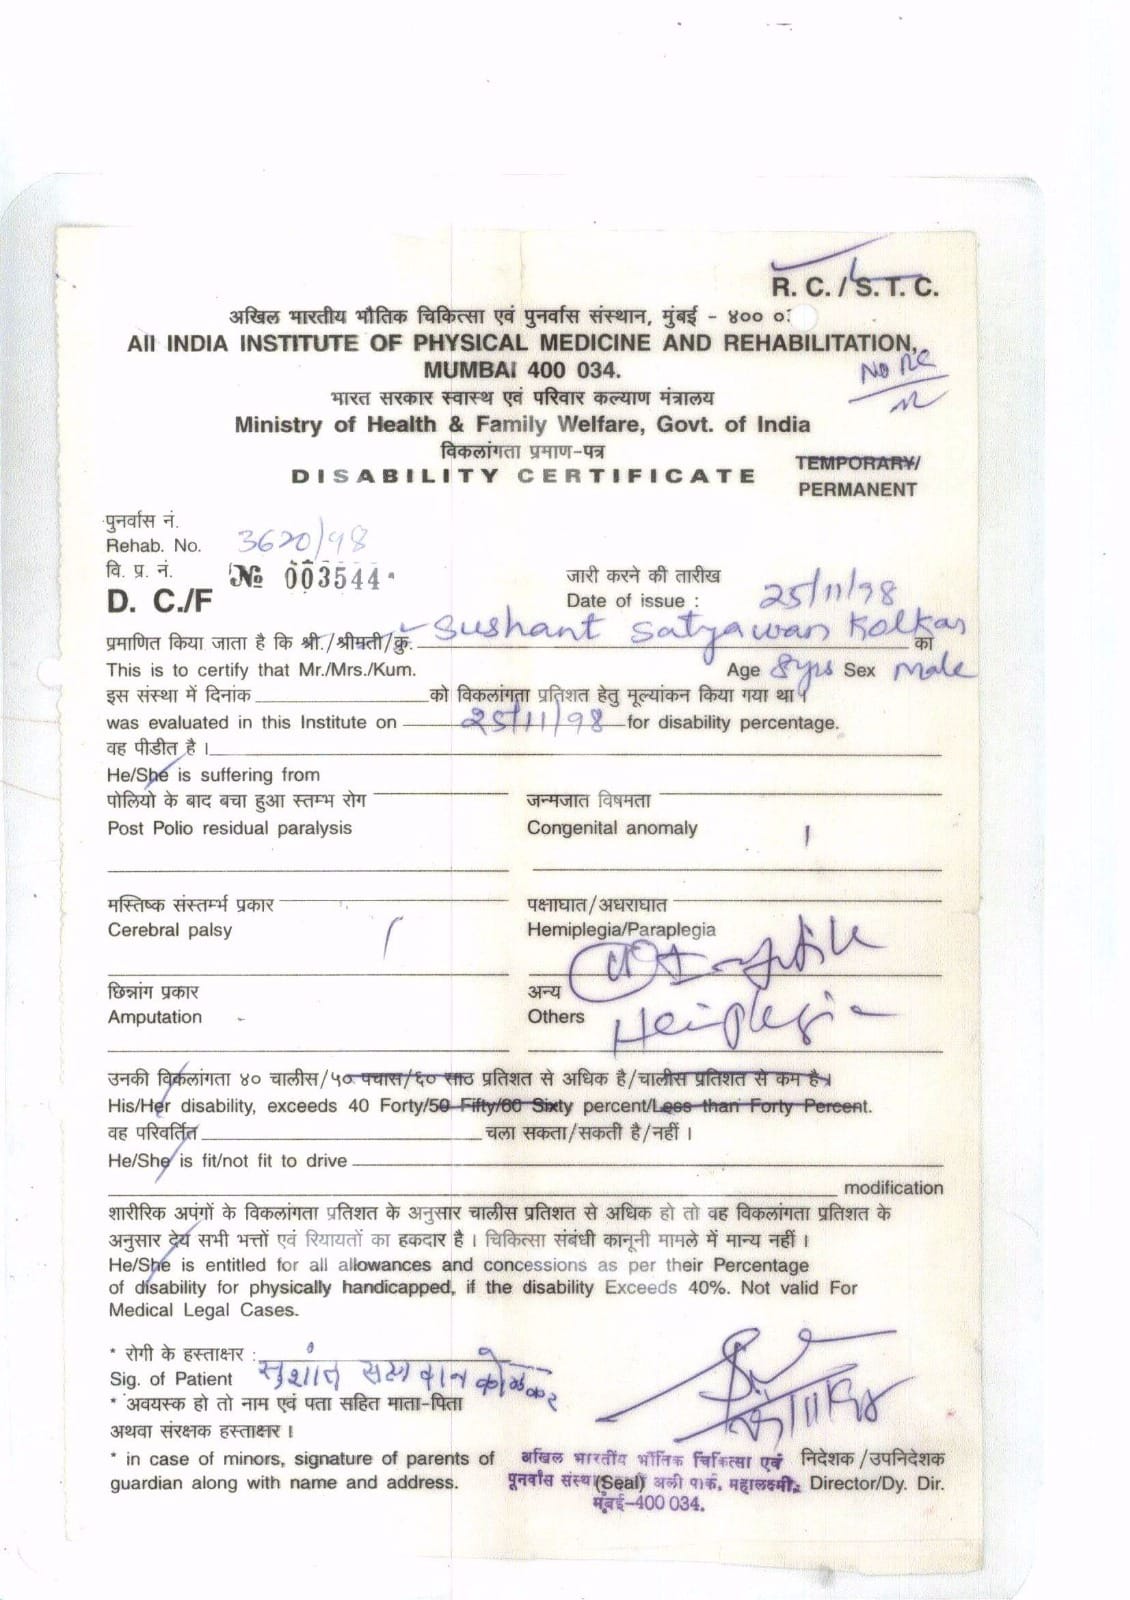 R. C. / S. T. C.
अखिल भारतीय भौतिक चिकित्सा एवं पुनर्वास संस्थान, मुंबई - ४०० ०
All INDIA INSTITUTE OF PHYSICAL MEDICINE AND REHABILITATION,
MUMBAI 400 034.
NO RC
भारत सरकार स्वास्थ एवं परिवार कल्याण मंत्रालय
Ministry of Health & Family Welfare, Govt. of India
विकलांगता प्रमाण-पत्र
DISABILITY CERTIFICATE
TEMPORARY/
PERMANENT
पुनर्वास नं.
Rehab. No. 3620/98
वि. प्र. नं.
D. C./F № 003544
जारी करने की तारीख
Date of issue : 25/11/98
प्रमाणित किया जाता है कि श्री./श्रीमती/कु. Sushant Satyawan Kolkar का
This is to certify that Mr./Mrs./Kum. Age 8yrs Sex Male
इस संस्था में दिनांक को विकलांगता प्रतिशत हेतु मूल्यांकन किया गया था।
was evaluated in this Institute on 25/11/98 for disability percentage.
वह पीडीत है।
He/She is suffering from
पोलियो के बाद बचा हुआ स्तम्भ रोग जन्मजात विषमता
Post Polio residual paralysis Congenital anomaly
मस्तिष्क संस्तर्म्भ प्रकार पक्षाघात/अधराघात
Cerebral palsy Hemiplegia/Paraplegia
छिन्नांग प्रकार अन्य
Amputation Others Heiplegia
उनकी विकलांगता ४० चालीस/५० पचास/६० साठ प्रतिशत से अधिक है/चालीस प्रतिशत से कम है।
His/Her disability, exceeds 40 Forty/50 Fifty/60 Sixty percent/Less than Forty Percent.
वह परिवर्तित चला सकता/सकती है/नहीं।
He/She is fit/not fit to drive
modification
शारीरिक अपंगों के विकलांगता प्रतिशत के अनुसार चालीस प्रतिशत से अधिक हो तो वह विकलांगता प्रतिशत के
अनुसार देय सभी भत्तों एवं रियायतों का हकदार है। चिकित्सा संबंधी कानूनी मामले में मान्य नहीं।
He/She is entitled for all allowances and concessions as per their Percentage
of disability for physically handicapped, if the disability Exceeds 40%. Not valid For
Medical Legal Cases.
* रोगी के हस्ताक्षर :
Sig. of Patient सुशांत सत्यवान कोळकर
* अवयस्क हो तो नाम एवं पता सहित माता-पिता
अथवा संरक्षक हस्ताक्षर।
* in case of minors, signature of parents of
guardian along with name and address.
अखिल भारतीय भौतिक चिकित्सा एवं
पूनर्वास संस्था (Seal) अली पार्क, महालक्ष्मी,
मुंबई-400 034.
निदेशक/उपनिदेशक
Director/Dy. Dir.